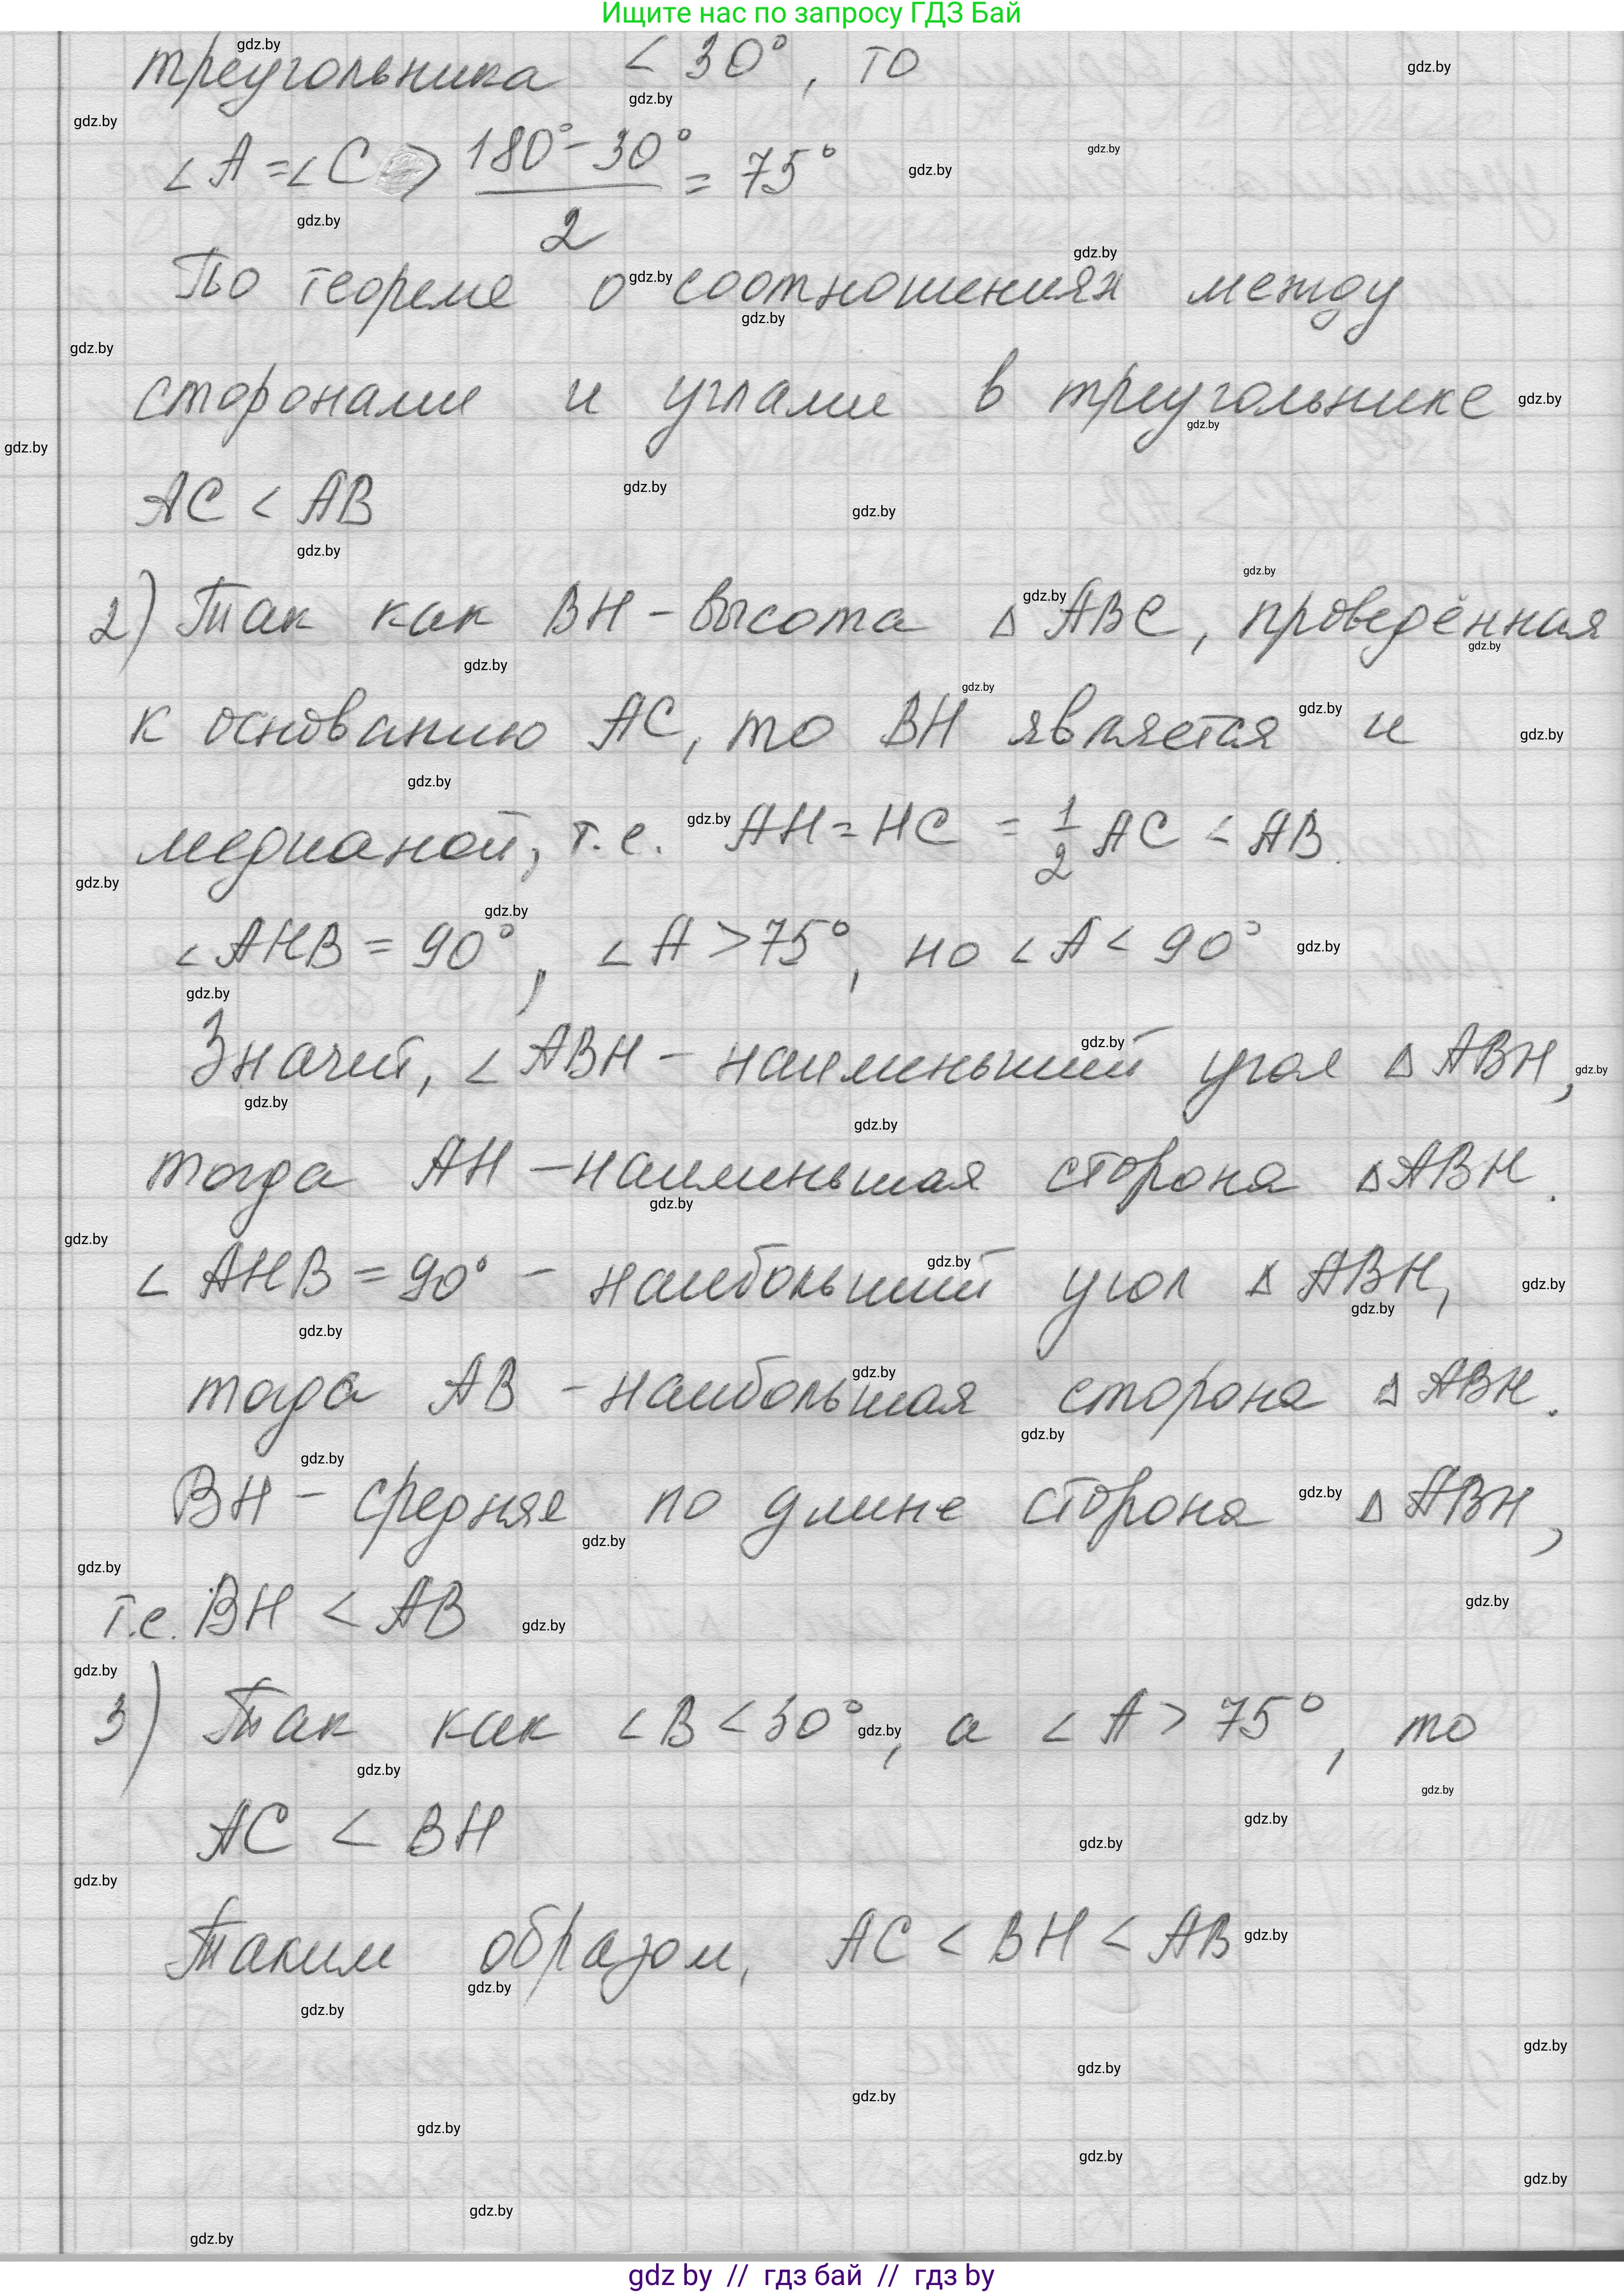 Ищите нас по запросу ГДЗ Бай
треугольника < 30°, то
∠A = ∠C > (180° − 30°)/2 = 75°
По теореме о соотношениях между
сторонами и углами в треугольнике
AC < AB
2) Так как BH – высота △ABC, проведённая
к основанию AC, то BH является и
медианой, т.е. AH = HC = 1/2 AC < AB.
∠AHB = 90°, ∠A > 75°, но ∠A < 90°
Значит, ∠ABH – наименьший угол △ABH,
тогда AH – наименьшая сторона △ABH.
∠AHB = 90° – наибольший угол △ABH,
тогда AB – наибольшая сторона △ABH.
BH – средняя по длине сторона △ABH,
т.е. BH < AB
3) Так как ∠B < 30°, а ∠A > 75°, то
AC < BH
Таким образом, AC < BH < AB
gdz by // гдз бай // гдз by